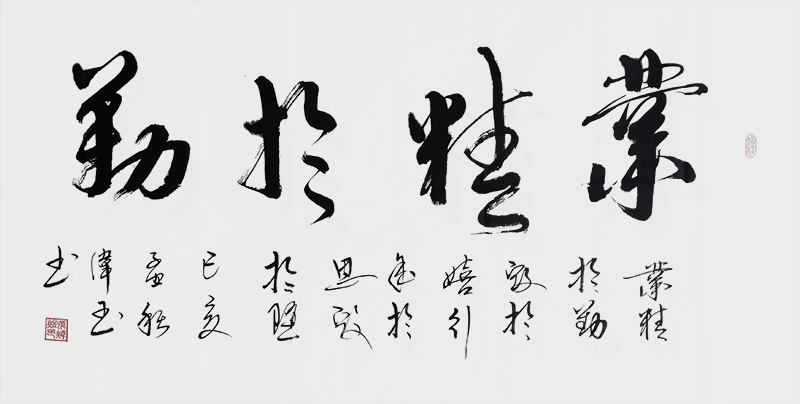 業精於勤
業精
於勤
荒於
嬉行
成於
思毀
於随
己亥
孟秋
偉玉
书